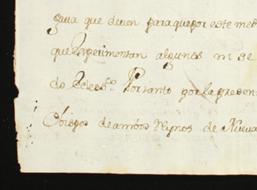 guia que deven para que por este met
que Experimentan algunos
do Eccles.º Por tanto por la presen
Obispos de ambos Reynos de Nueva